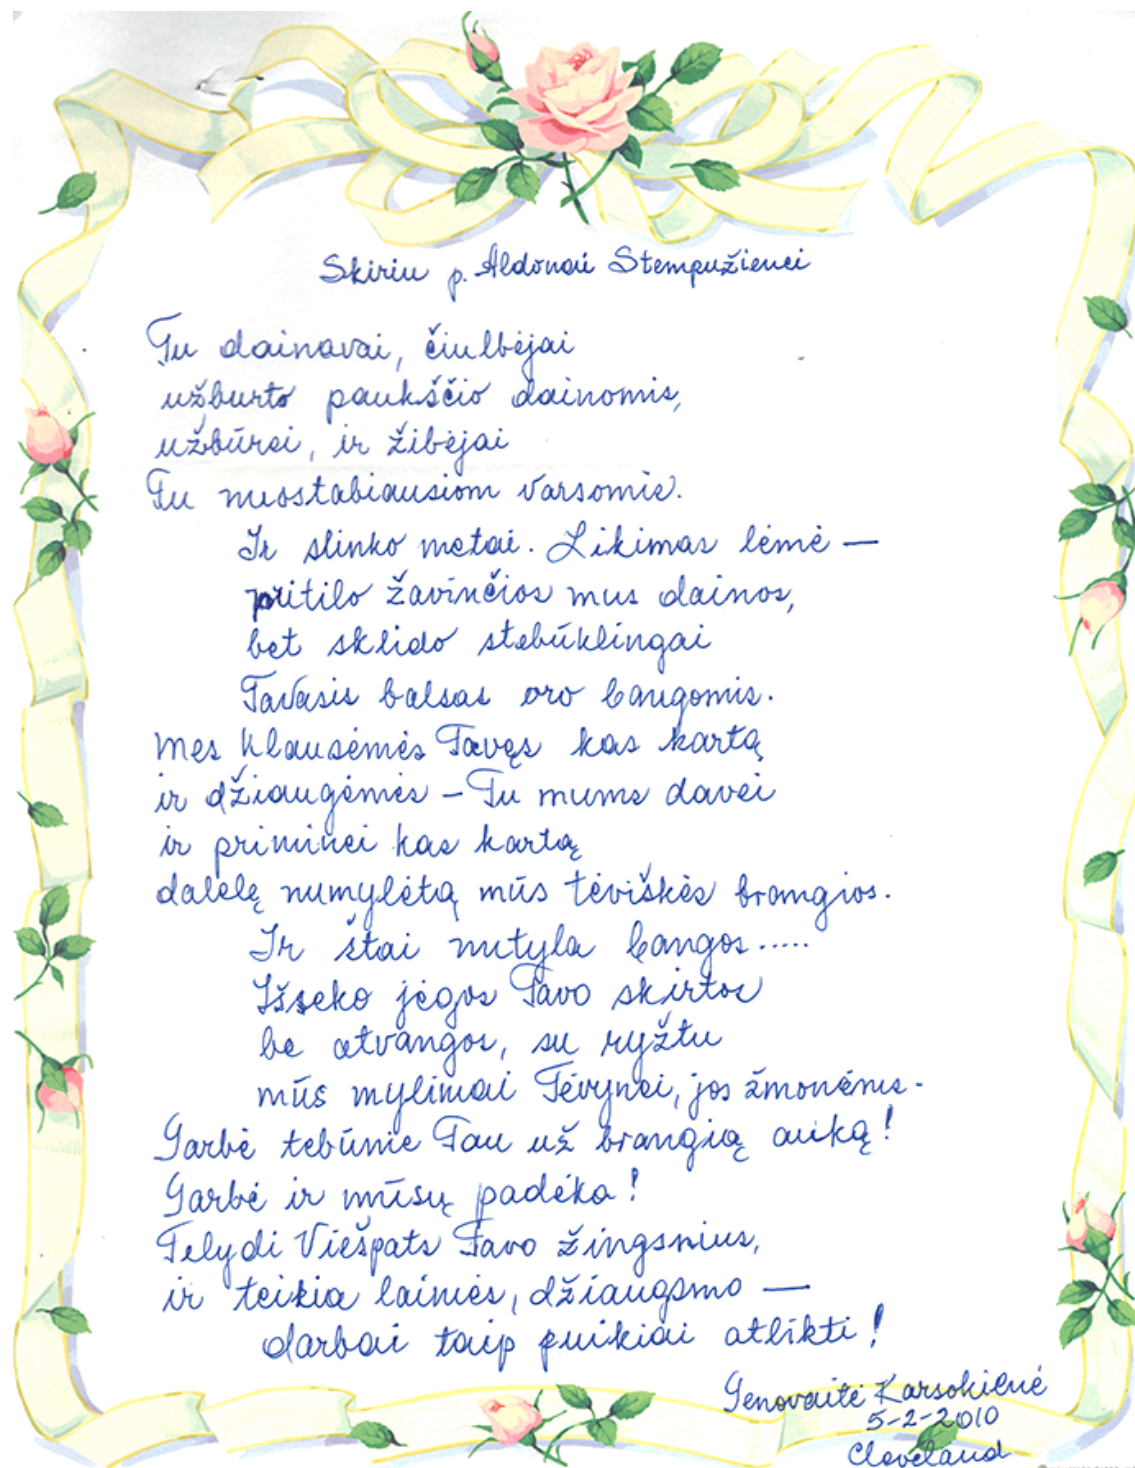 Skiriu p. Aldonai Stempužienei
Tu dainavai, čiulbėjai
užburto paukščio dainomis,
užbūrei, ir žibėjai
Tu nuostabiausiom varsomis.
Ir slinko metai. Likimas lėmė —
pritilo žavinčios mus dainos,
bet sklido stebūklingai
Tavasis balsas oro bangomis.
Mes klausėmės Tavęs kas kartą
ir džiaugėmės – Tu mums davei
ir priminei kas kartą
dalelę numylėtą mūs tėviškės brangios.
Ir štai nutyla bangos.....
Išseko jėgos Tavo skirtos
be atvangos, su ryžtu
mūs mylimai Tėvynei, jos žmonėms.
Garbė tebūnie Tau už brangią auką!
Garbė ir mūsų padėka!
Telydi Viešpats Tavo žingsnius,
ir teikia laimės, džiaugsmo —
darbai taip puikiai atlikti!
Genovaitė Karsokienė
5-2-2010
Cleveland